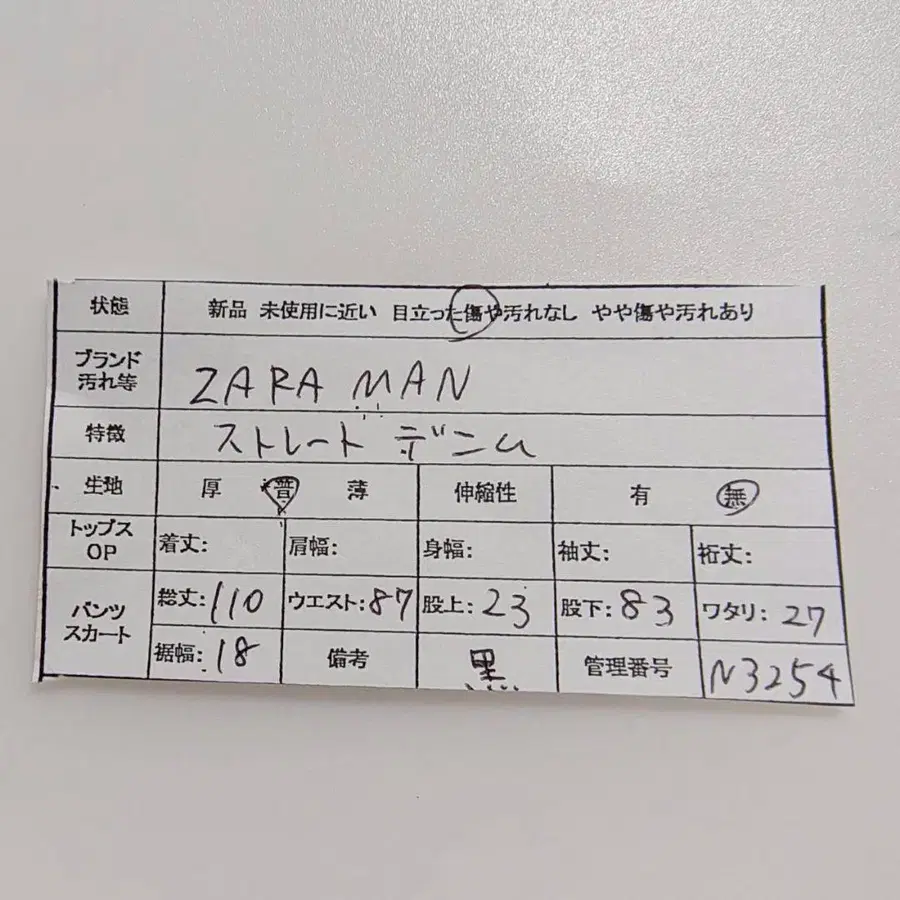 状態 新品 未使用に近い 目立った傷や汚れなし やや傷や汚れあり
ブランド 汚れ等 ZARA MAN
特徴 ストレート デニム
生地 厚 普 薄 伸縮性 有 無
トップス OP 着丈: 肩幅: 身幅: 袖丈: 裄丈:
パンツ スカート 総丈:110 ウエスト:87 股上:23 股下:83 ワタリ:27
裾幅:18 備考 黒 管理番号 N3254